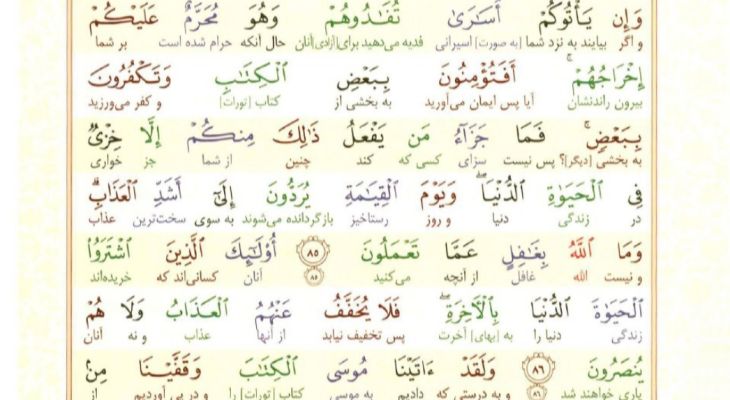 وَإِن يَأْتُوكُمْ أُسَـٰرَىٰ تُفَـٰدُوهُمْ وَهُوَ مُحَرَّمٌ عَلَيْكُمْ
و اگر بیایند به نزد شما [به صورت] اسیرانی فدیه می‌دهید برای [آزادی] آنان حال آنکه حرام شده است بر شما
إِخْرَاجُهُمْ ۚ أَفَتُؤْمِنُونَ بِبَعْضِ ٱلْكِتَـٰبِ وَتَكْفُرُونَ
بیرون راندنشان آیا پس ایمان می‌آورید به بخشی از کتاب [تورات] و کفر می‌ورزید
بِبَعْضٍ ۚ فَمَا جَزَآءُ مَن يَفْعَلُ ذَٰلِكَ مِنكُمْ إِلَّا خِزْىٌ
به بخشی [دیگر]؟ پس نیست سزای کسی که کند چنین از شما جز خواری
فِى ٱلْحَيَوٰةِ ٱلدُّنْيَا ۖ وَيَوْمَ ٱلْقِيَـٰمَةِ يُرَدُّونَ إِلَىٰٓ أَشَدِّ ٱلْعَذَابِ ۗ
در زندگی دنیا و روز رستاخیز بازگردانده می‌شوند به سوی سخت‌ترین عذاب
وَمَا ٱللَّهُ بِغَـٰفِلٍ عَمَّا تَعْمَلُونَ ٨٥ أُو۟لَـٰٓئِكَ ٱلَّذِينَ ٱشْتَرَوُا۟
و نیست الله غافل از آنچه می‌کنید ۸۵ آنان کسانی‌اند که خریده‌اند
ٱلْحَيَوٰةَ ٱلدُّنْيَا بِٱلْـَٔاخِرَةِ ۖ فَلَا يُخَفَّفُ عَنْهُمُ ٱلْعَذَابُ وَلَا هُمْ
زندگی دنیا را به [بهای] آخرت پس تخفیف نیابد از آنها عذاب و نه آنان
يُنصَرُونَ ٨٦ وَلَقَدْ ءَاتَيْنَا مُوسَى ٱلْكِتَـٰبَ وَقَفَّيْنَا مِنۢ
یاری خواهند شد ۸۶ و به درستی که دادیم به موسی کتاب [تورات] را و در پی آوردیم از